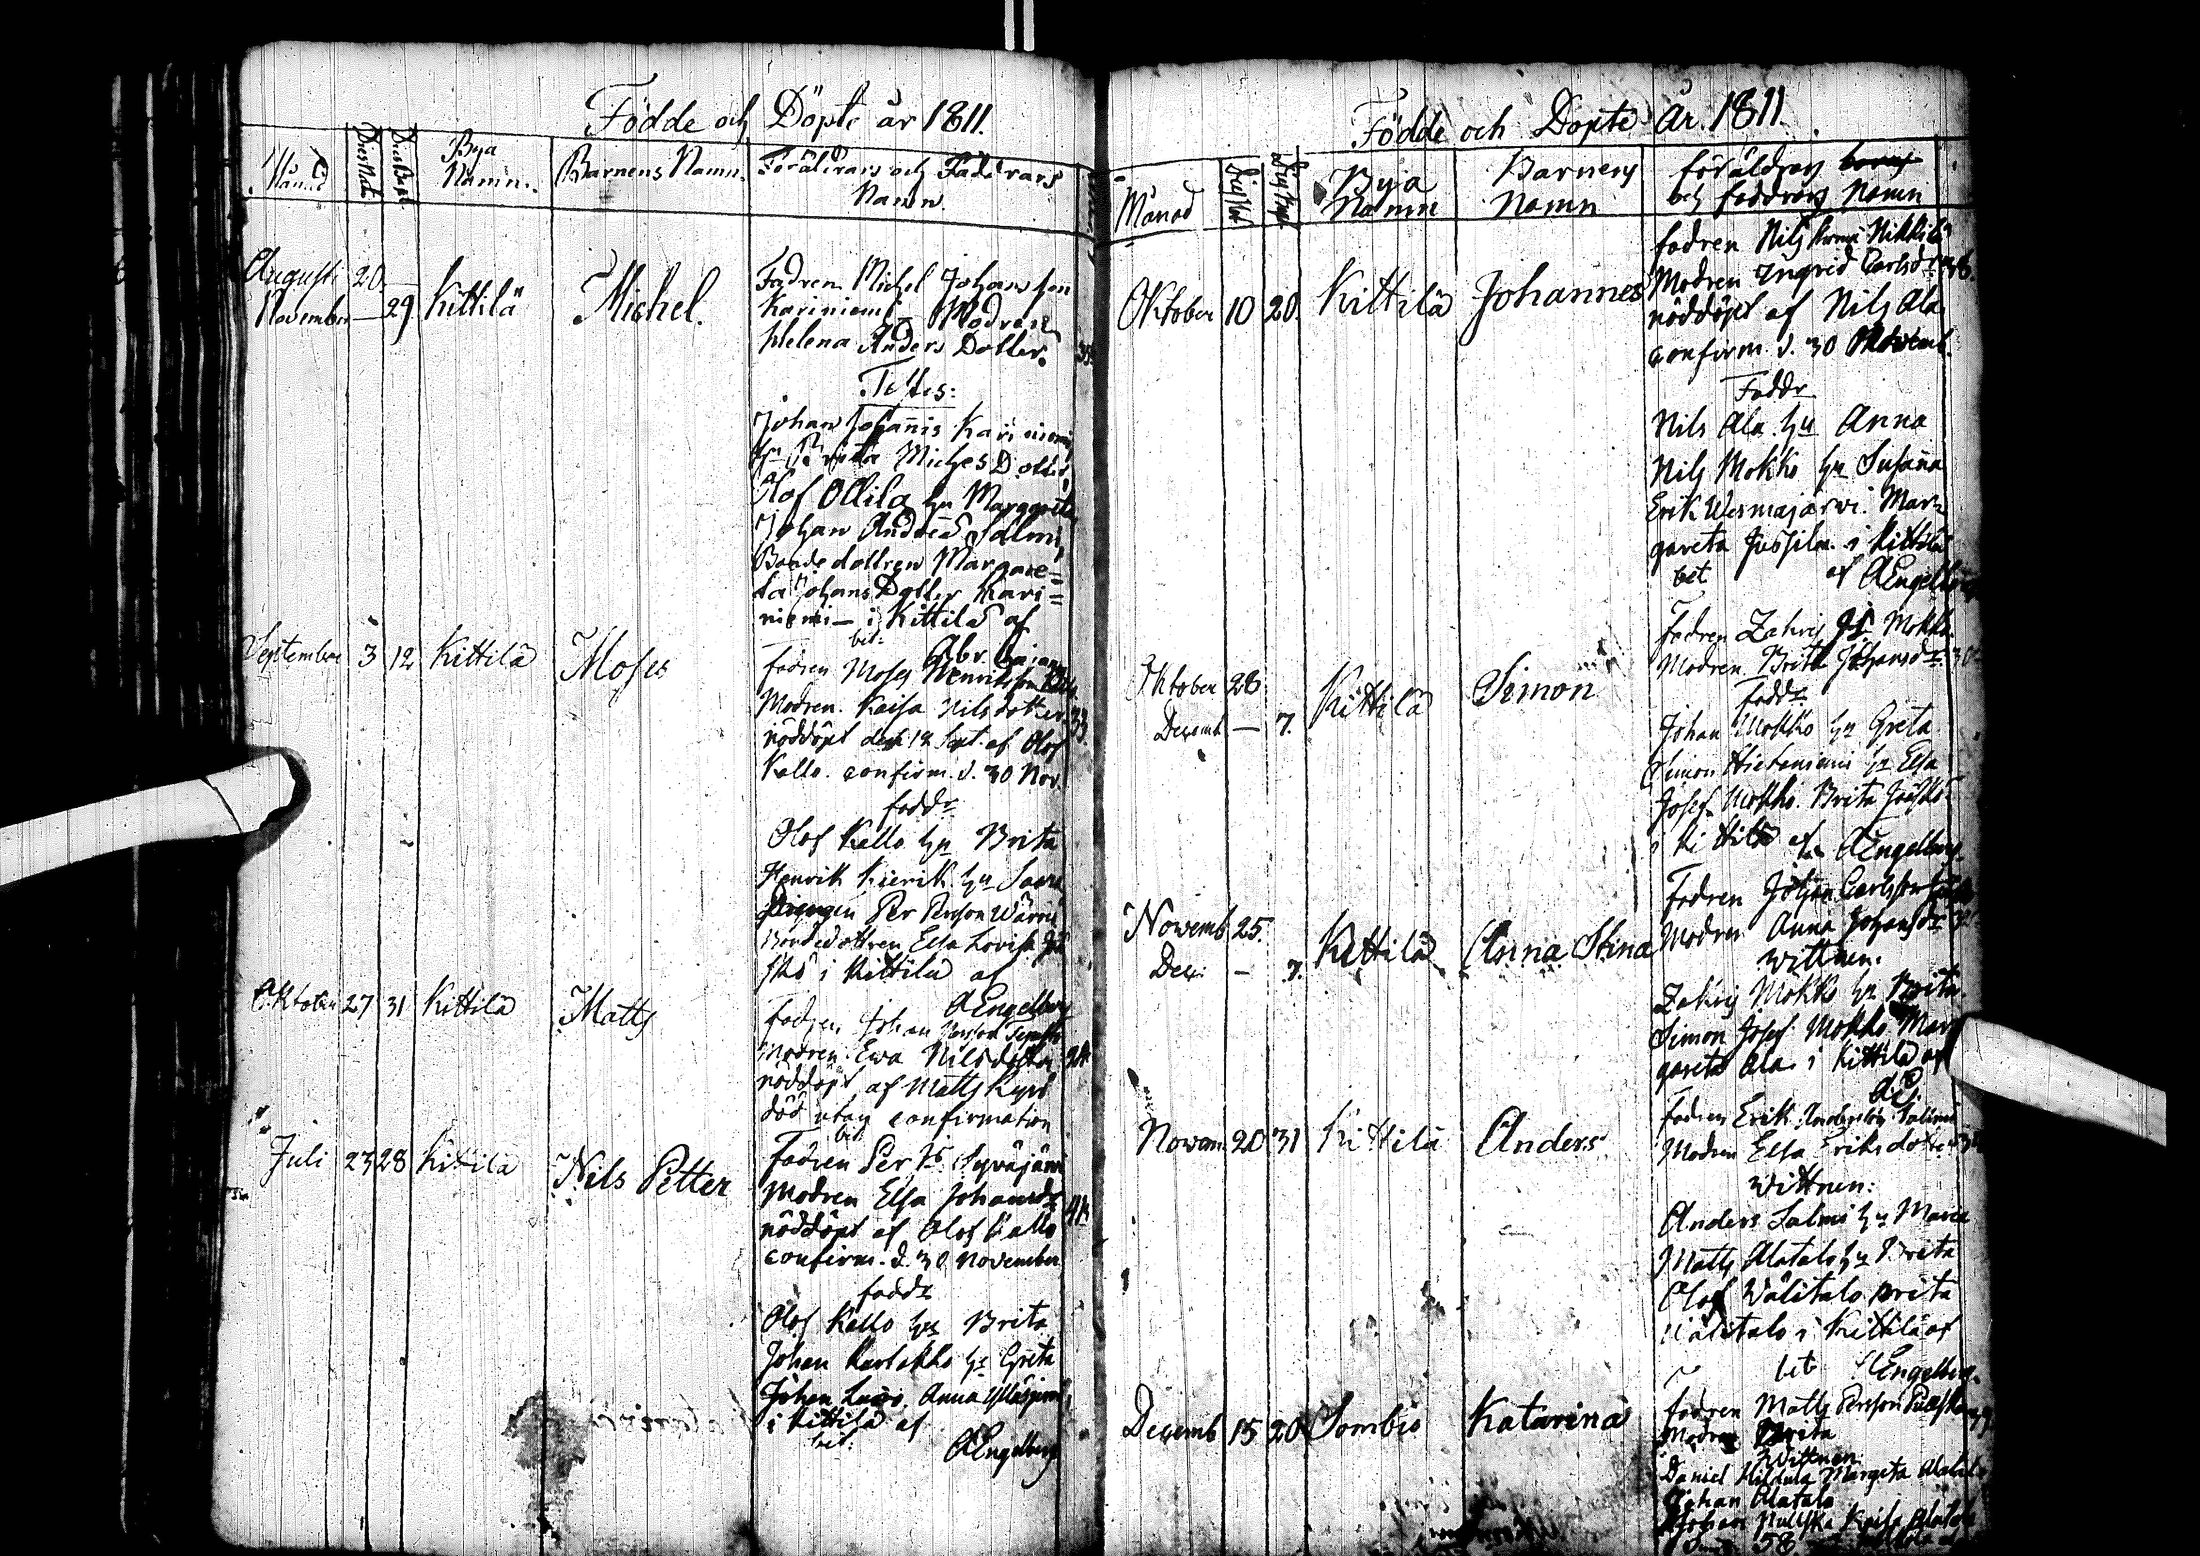 Födde och Döpte år 1811.
Månad
Dies Nat.
Dies Bapt.
Bya Namn.
Barnens Namn.
Föräldrars och Faddrars Namn.
Augusti 20.
November — 29 Kittilä Michel.
Fadren Michel Johansson
Kariniemi – Modren
Helena Anders Dotter.
Testes:
Johan Johannis Kariniemi
Hu Brita Miches Dotter
Olof Ollila hu Margareta
Johan Andreae Salmi,
Bondedottren Margare=
ta Johans Dotter Kari=
niemi — i Kittilä af
bet: Abr.
September 3 12 Kittilä Moses
fadren Moses Henriksson
Modren Kaisa Nilsdotter 33
nöddöpt den 12 Sept. af Olof
Kallo. confirm. d. 30 Nov.
faddr
Olof Kallo hu Brita
Henrik Kieri hu Saara
Drengen Per Persson
Bondedottren Elsa Lovisa
i Kittilä af
AEngelberg
Oktober 27 31 Kittilä Matts
fadren Johan
Modren Ewa Nilsdotter 24
nöddöpt af Matts Kyrö
död utan confirmation
bet
Juli 23 28 Kittilä Nils Petter
Fadren Per Is. Syväjärvi
Modren Elsa Johansdr 41
nöddöpt af Olof Kallo
confirm. d. 30 November
faddr
Olof Kallo hu Brita
Johan hu Greta
Johan Anna
i Kittilä af
bet: AEngelberg
Födde och Döpte År. 1811.
Månad
Bya Namn
Barnens Namn
föräldrars
och faddrars Namn
Oktober 10 20. Kittilä Johannes
fadren Nils Nikkilä
Modren Ingrid Carlsdr 36.
nöddöpt af Nils Ala
confirm. d. 30 Novemb.
Faddr
Nils Ala hu Anna
Nils Mokko hu Susanna
Erik Wesmajärwi. Mar=
gareta Jussila i Kittilä
bet af AEngelberg
Oktober 28
Decemb — 7. Kittilä Simon
Fadren Zakris Mokko.
Modren Brita Johansdr 30
Faddr
Johan Mokko hu Greta
Simon Hietaniemi hu Elsa
Josef Mokko. Brita
i Kittilä af AEngelberg
Novemb 25.
Dec: – 7. Kittilä Anna Stina
Fadren Johan Carlsson
Modren Anna Johansdr
Wittnen.
Zakris Mokko hu Brita.
Simon Josef Mokko Mar
gareta Ala i Kittilä af
AE
Novem 20 31 Kittilä Anders
Fadren Erik Andersson Salmi
Modren Elsa Eriksdotter
Wittnen:
Anders Salmi hu Maria
Matts Alatalo hu Brita
Olof Wälitalo Brita
Wälitalo i Kittilä af
bet AEngelberg.
Decemb 15 20 Sombio Katarina
fadren Matts Persson
Modren Brita
Wittnen
Daniel Hildula Margeta Alatalo
Johan Alatalo
Johan Kaisa Alatalo
58